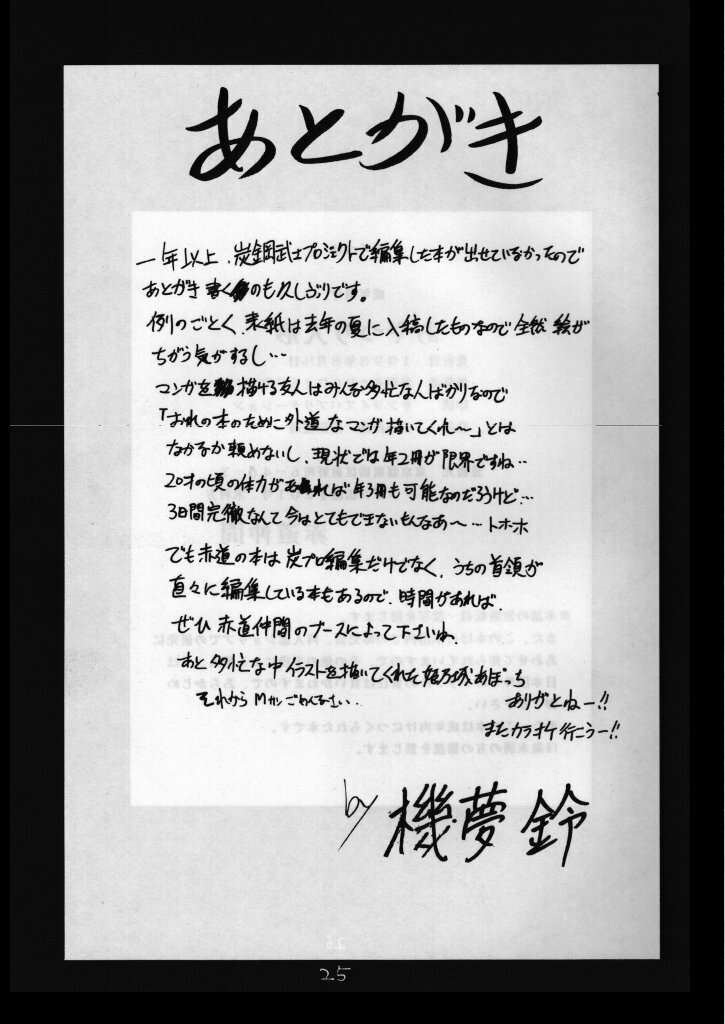 あとがき
一年以上、炭鋼武士プロジェクトで編集した本が出せていなかったので
あとがき書くのも久しぶりです。
例のごとく、表紙は去年の夏に入稿したものなので全然絵が
ちがう気がするし…
マンガを描ける友人はみんな多忙な人ばかりなので
「おれの本のために外道なマンガ描いてくれ〜」とは
なかなか頼めないし、現状では年2冊が限界ですね…
20才の頃の体力があれば年3冊も可能なのだろうけど…
3日間完徹なんて今はとてもできないもんなあ〜…トホホ
でも赤道の本は炭プロ編集だけでなく、うちの首領が
直々に編集している本もあるので、時間があれば、
ぜひ赤道仲間のブースによって下さいね。
あと多忙な中イラストを描いてくれた あぽっち
それから Mカン ごめんなさい.
ありがとねー!!
またカラオケ行こうー!!
by 機夢鈴
25